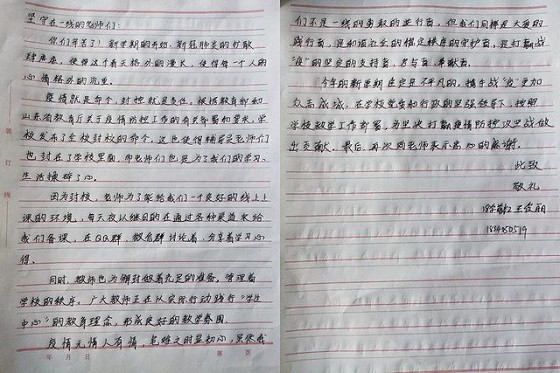 坚守在一线的老师们:
你们辛苦了! 新学期的开始, 新冠肺炎的扩散
对患者, 使得这个春天格外的漫长, 使得每一个人的
心情格外的沉重。
疫情就是命令, 封控就是责任, 根据教育部和
山东省教育厅关于疫情防控工作的有关部署和要求, 学
校发布了全校封校的命令, 这也使得辅导员老师们
也封在了学校里面, 而老师们也是为了我们的学习、
生活操碎了心。
因为封校, 老师为了能给我们一个良好的线上上
课的环境, 每天夜以继日的在通过各种渠道来给
我们备课, 在QQ群, 微信群讨论着, 分享着学习心
得。
同时, 教师也为做着充足的准备, 管理着
学校的秩序, 广大教师正在从实际行动践行“学生
中心”的教育理念, 形成良好的教学氛围.
疫情无情人有情, 危难之时显初心, 虽然我
年 月 日 第 页
装
订
线
们不是一线的勇敢的逆行者, 但我们同样是大爱的
践行者, 是和谐社会的稳定秩序的守护者, 是打赢战
“疫”的坚定的支持者, 参与者, 奉献者.
今年的新学期注定是不平凡的, 携手战“疫”更加
众志成城, 在学校党委和行政的坚强领导下, 按照
学校教学工作部署, 为坚决打赢疫情防控攻坚战做
出贡献. 最后, 再次向老师表示衷心的感谢。
此致
敬礼